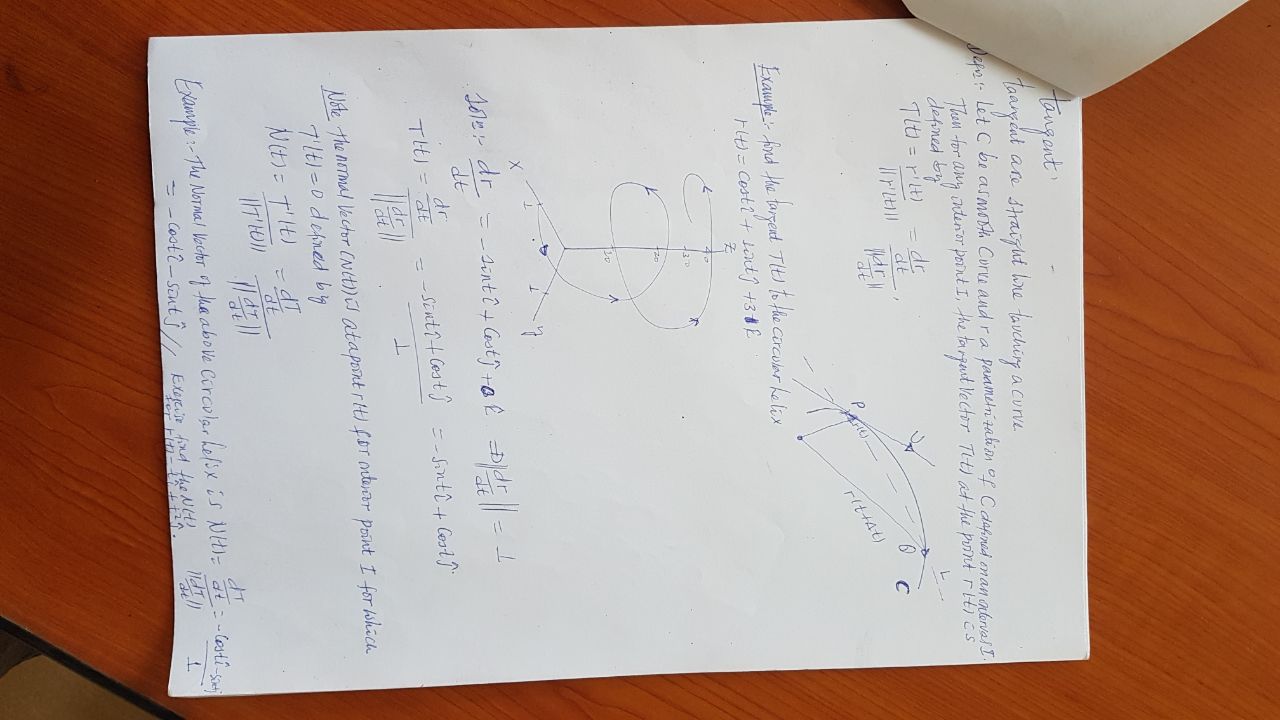 Tangent:
tangent are straight line touching a curve
Defn:- Let C be a smooth Curve and r a parametrization of C defined on an interval I.
Then for any interior point I, the tangent vector T(t) at the point r(t) is
defined by
T(t) = r'(t) / ||r'(t)|| = dr/dt / ||dr/dt||,
P
r(t)
r(t+Δt)
Q
L
C
Example:- find the tangent T(t) to the circular helix
r(t) = cost î + sint ĵ + 3 k
Z
X
y
1
1
Soln:- dr/dt = -sint î + cost ĵ + 0 k ⇒ ||dr/dt|| = 1
T(t) = dr/dt / ||dr/dt|| = -sint î + cost ĵ / 1 = -sint î + cost ĵ.
Note the normal vector (N(t)) is at a point r(t) for interior point I for which
T'(t) = 0 defined by
N(t) = T'(t) / ||T'(t)|| = dT/dt / ||dT/dt||
Example:- The Normal vector of the above Circular helix is N(t) = dT/dt / ||dT/dt|| = -cost î - sint ĵ / 1
= -cost î - sint ĵ // Exercise find the N(t)
for r(t) =